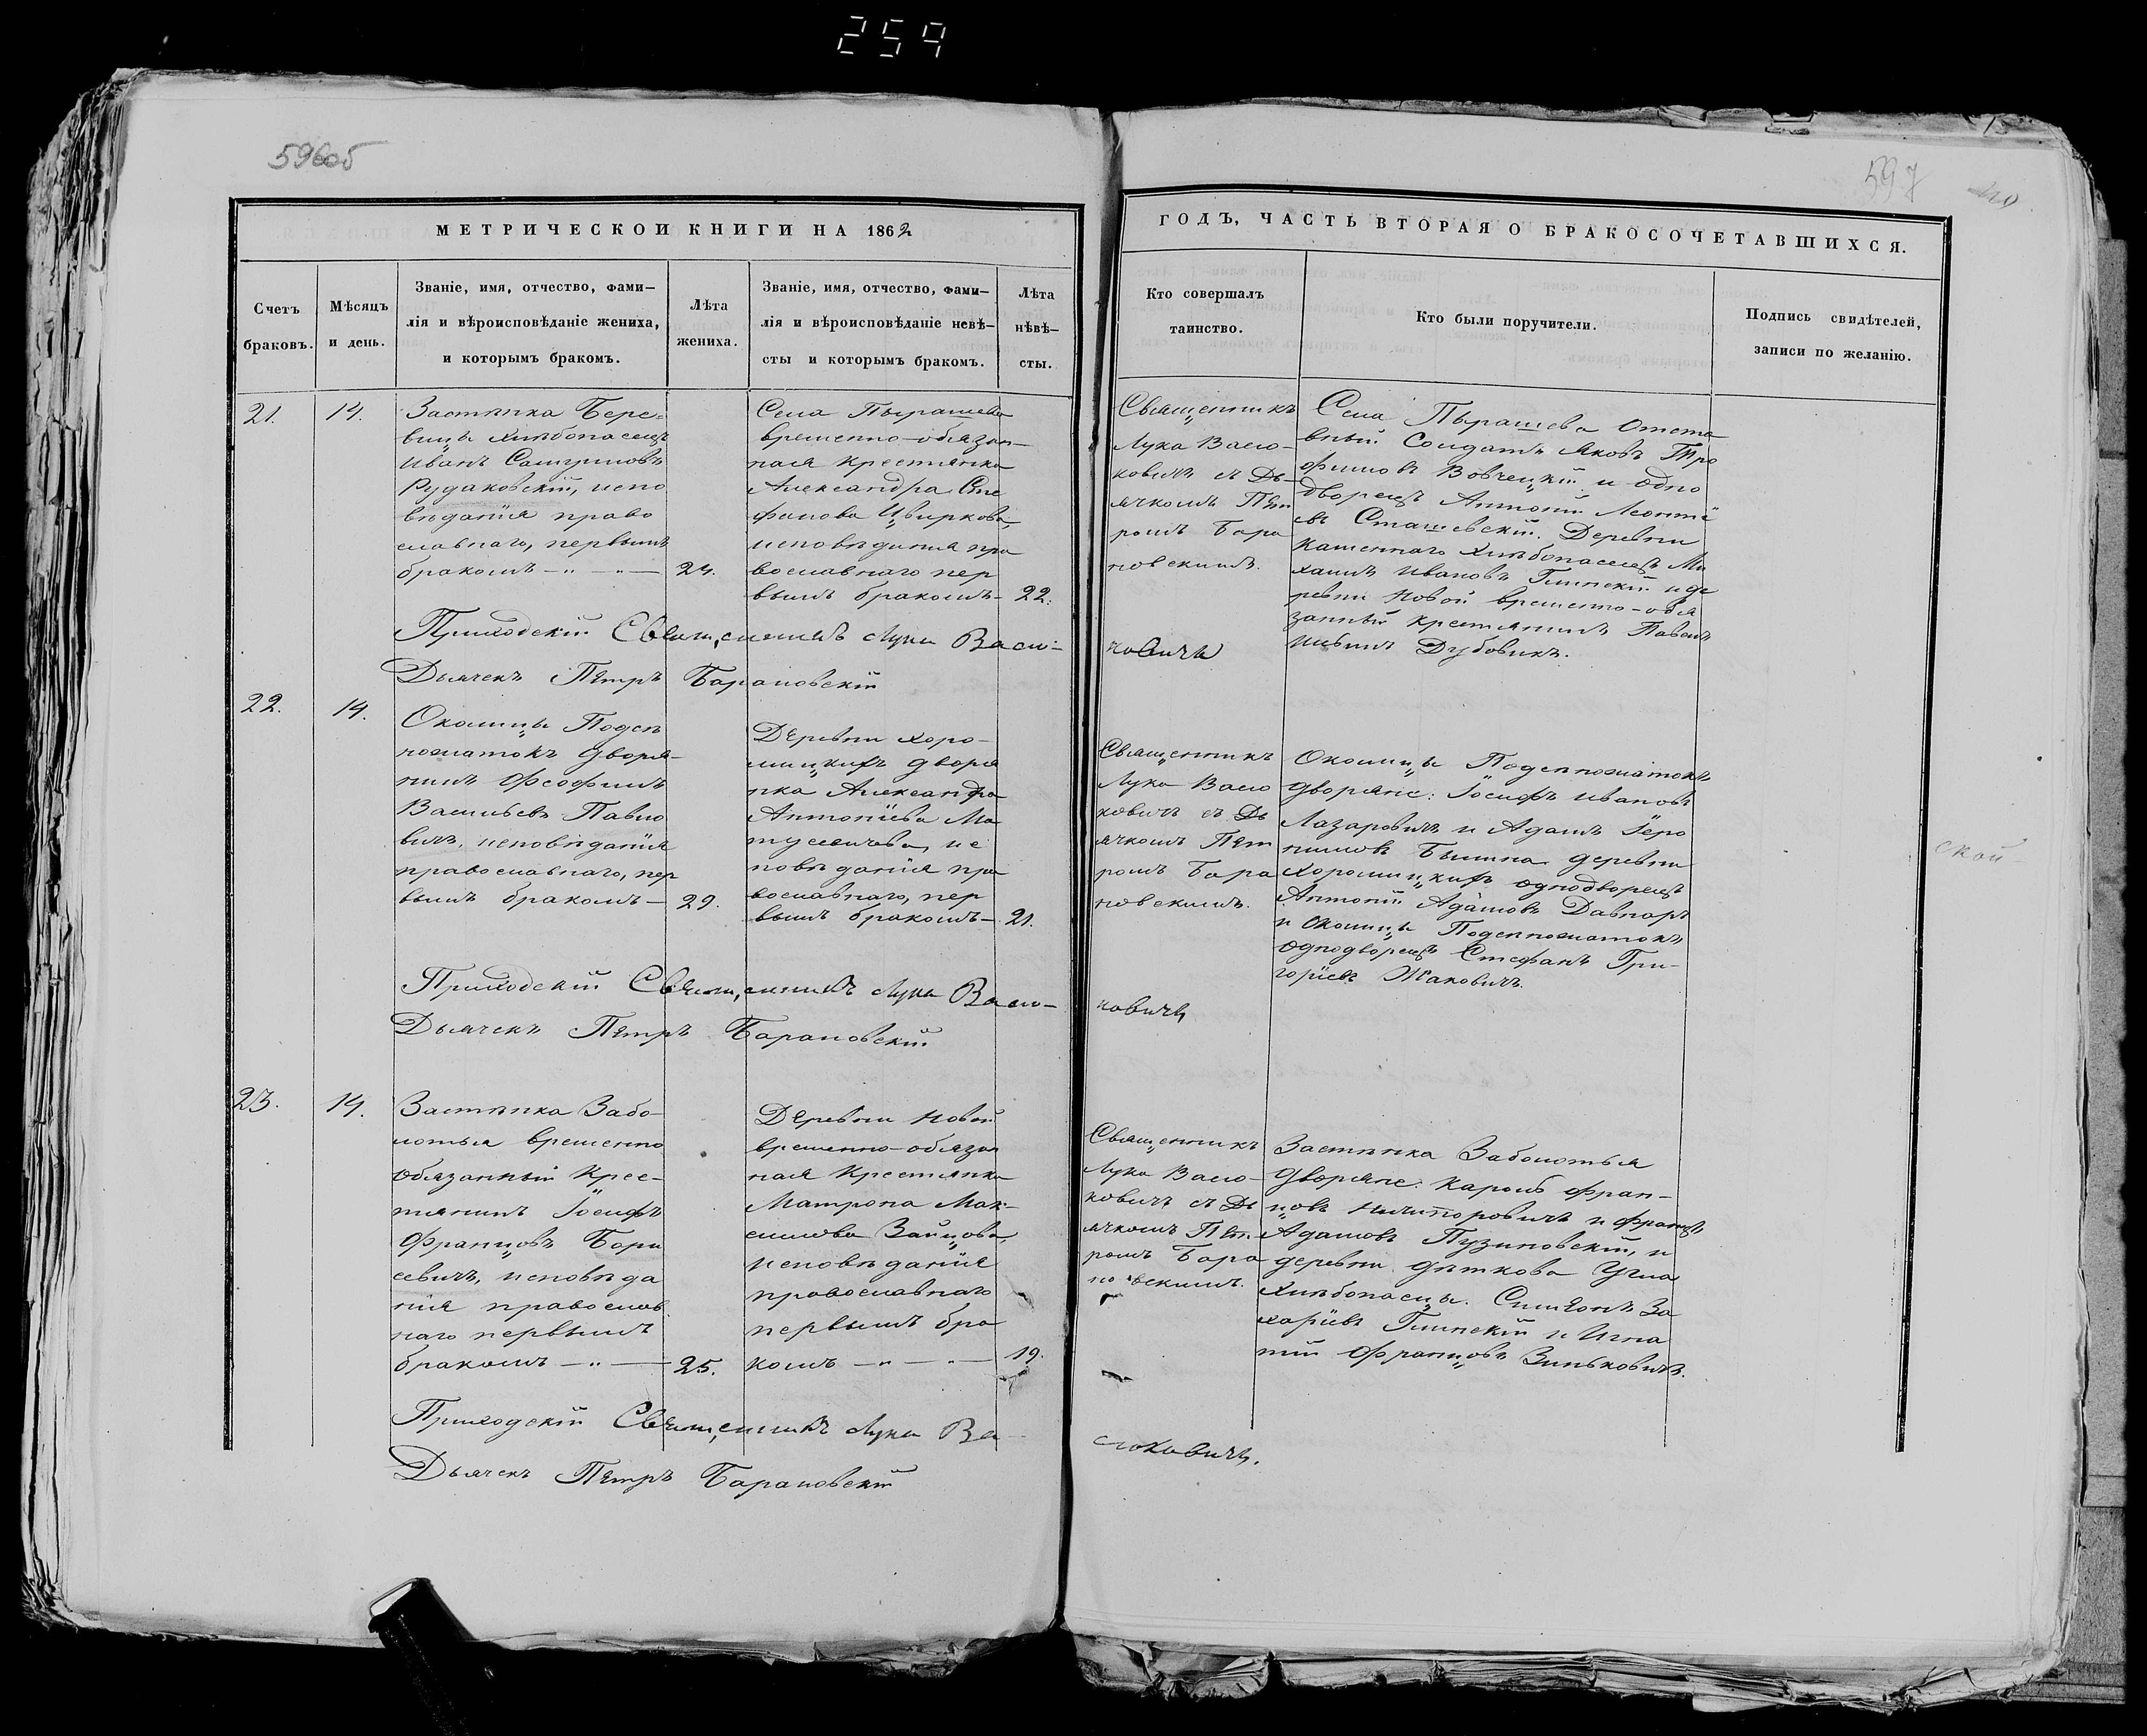 259
596об
597
МЕТРИЧЕСКОЙ КНИГИ НА 1862
Счетъ
браковъ.
Мѣсяцъ
и день.
Званіе, имя, отчество, фами-
лія и вѣроисповѣданіе жениха,
и которымъ бракомъ.
Лѣта
жениха.
Званіе, имя, отчество, фами-
лія и вѣроисповѣданіе невѣ-
сты и которымъ бракомъ.
Лѣта
нѣвѣ-
сты.
ГОДЪ, ЧАСТЬ ВТОРАЯ О БРАКОСОЧЕТАВШИХСЯ.
Кто совершалъ
таинство.
Кто были поручители.
Подпись свидѣтелей,
записи по желанію.
21.
14.
Застѣнка Бере-
вицы хлѣбопашецъ
Иванъ
Рудаковскій, испо
вѣданія право
славнаго, первымъ
бракомъ
24.
Села Пырашева
временно-обязан-
ная крестьянка
Александра Сте
фанова Цвиркова
исповѣданія пра
вославнаго пер
вымъ бракомъ-
22.
Священникъ
Лука Васю-
ковичъ съ Дь-
ячкомъ Пет
ромъ Бара
новскимъ.
Села Пырашева Отста
вный Солдатъ Яковъ Тро
фимовъ Вовчецкій и одно
дворецъ Антоній Леонтіе
въ Сташевскій. Деревни
Каменнаго хлѣбопашецъ Ми
хаилъ Ивановъ Глинскій и де
ревни Новой временно-обя
занный крестьянинъ Павелъ
Дубовикъ.
Приходскій Священникъ Лука Васю-
ковичъ
Дьячекъ Петръ Барановскій
22.
14.
Околицы Подсп
дворя-
нинъ Феофилъ
Васильевъ Павло
вичъ, исповѣданія
православнаго, пер
вымъ бракомъ-
29.
Деревни Хоро-
шицкихъ дворя
нка Александра
Антоніева Ма
тусевичева, ис
повѣданія пра
вославнаго, пер
вымъ бракомъ-
21.
Священникъ
Лука Васю
ковичъ съ Дь
ячкомъ Пет
ромъ Бара
новскимъ.
Околицы
Дворяне: Іосифъ Ивановъ
Лазаровичъ и Адамъ Іеро
нимовъ деревни
Хорошицкихъ однодворецъ
Антоній Адамовъ
и Околицы
Однодворецъ Стефанъ Гри-
горіевъ Жаковичъ.
Приходскій Священникъ Лука Васю-
ковичъ
Дьячекъ Петръ Барановскій
ской
23.
14.
Застѣнка Забо-
лотья временно
обязанный крес-
тьянинъ Іосифъ
Францовъ Бори
севичъ, исповѣда
нія православ
наго первымъ
бракомъ
25.
Деревни Новой
временно-обязан
ная крестьянка
Матрона Мак-
симова Зайцова,
исповѣданія
православнаго
первымъ бра
комъ
19.
Священникъ
Лука Васю-
ковичъ съ Дь
ячкомъ Пет-
ромъ Бара
новскимъ.
Застѣнка Заболотья
Дворяне: Кароль Фран-
цовъ Ничипоровичъ и Францъ
Адамовъ Пузиновскій, и
деревни Дѣткова
Хлѣбопасцы. Симеонъ За
харіевъ Глинскій и Игна
тій Францовъ Зиньковичъ.
Приходскій Священникъ Лука Ва-
сюковичъ.
Дьячекъ Петръ Барановскій